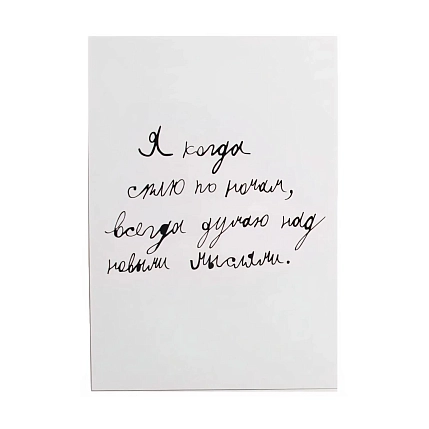 Я когда
сплю по ночам,
всегда думаю над
новыми мыслями.